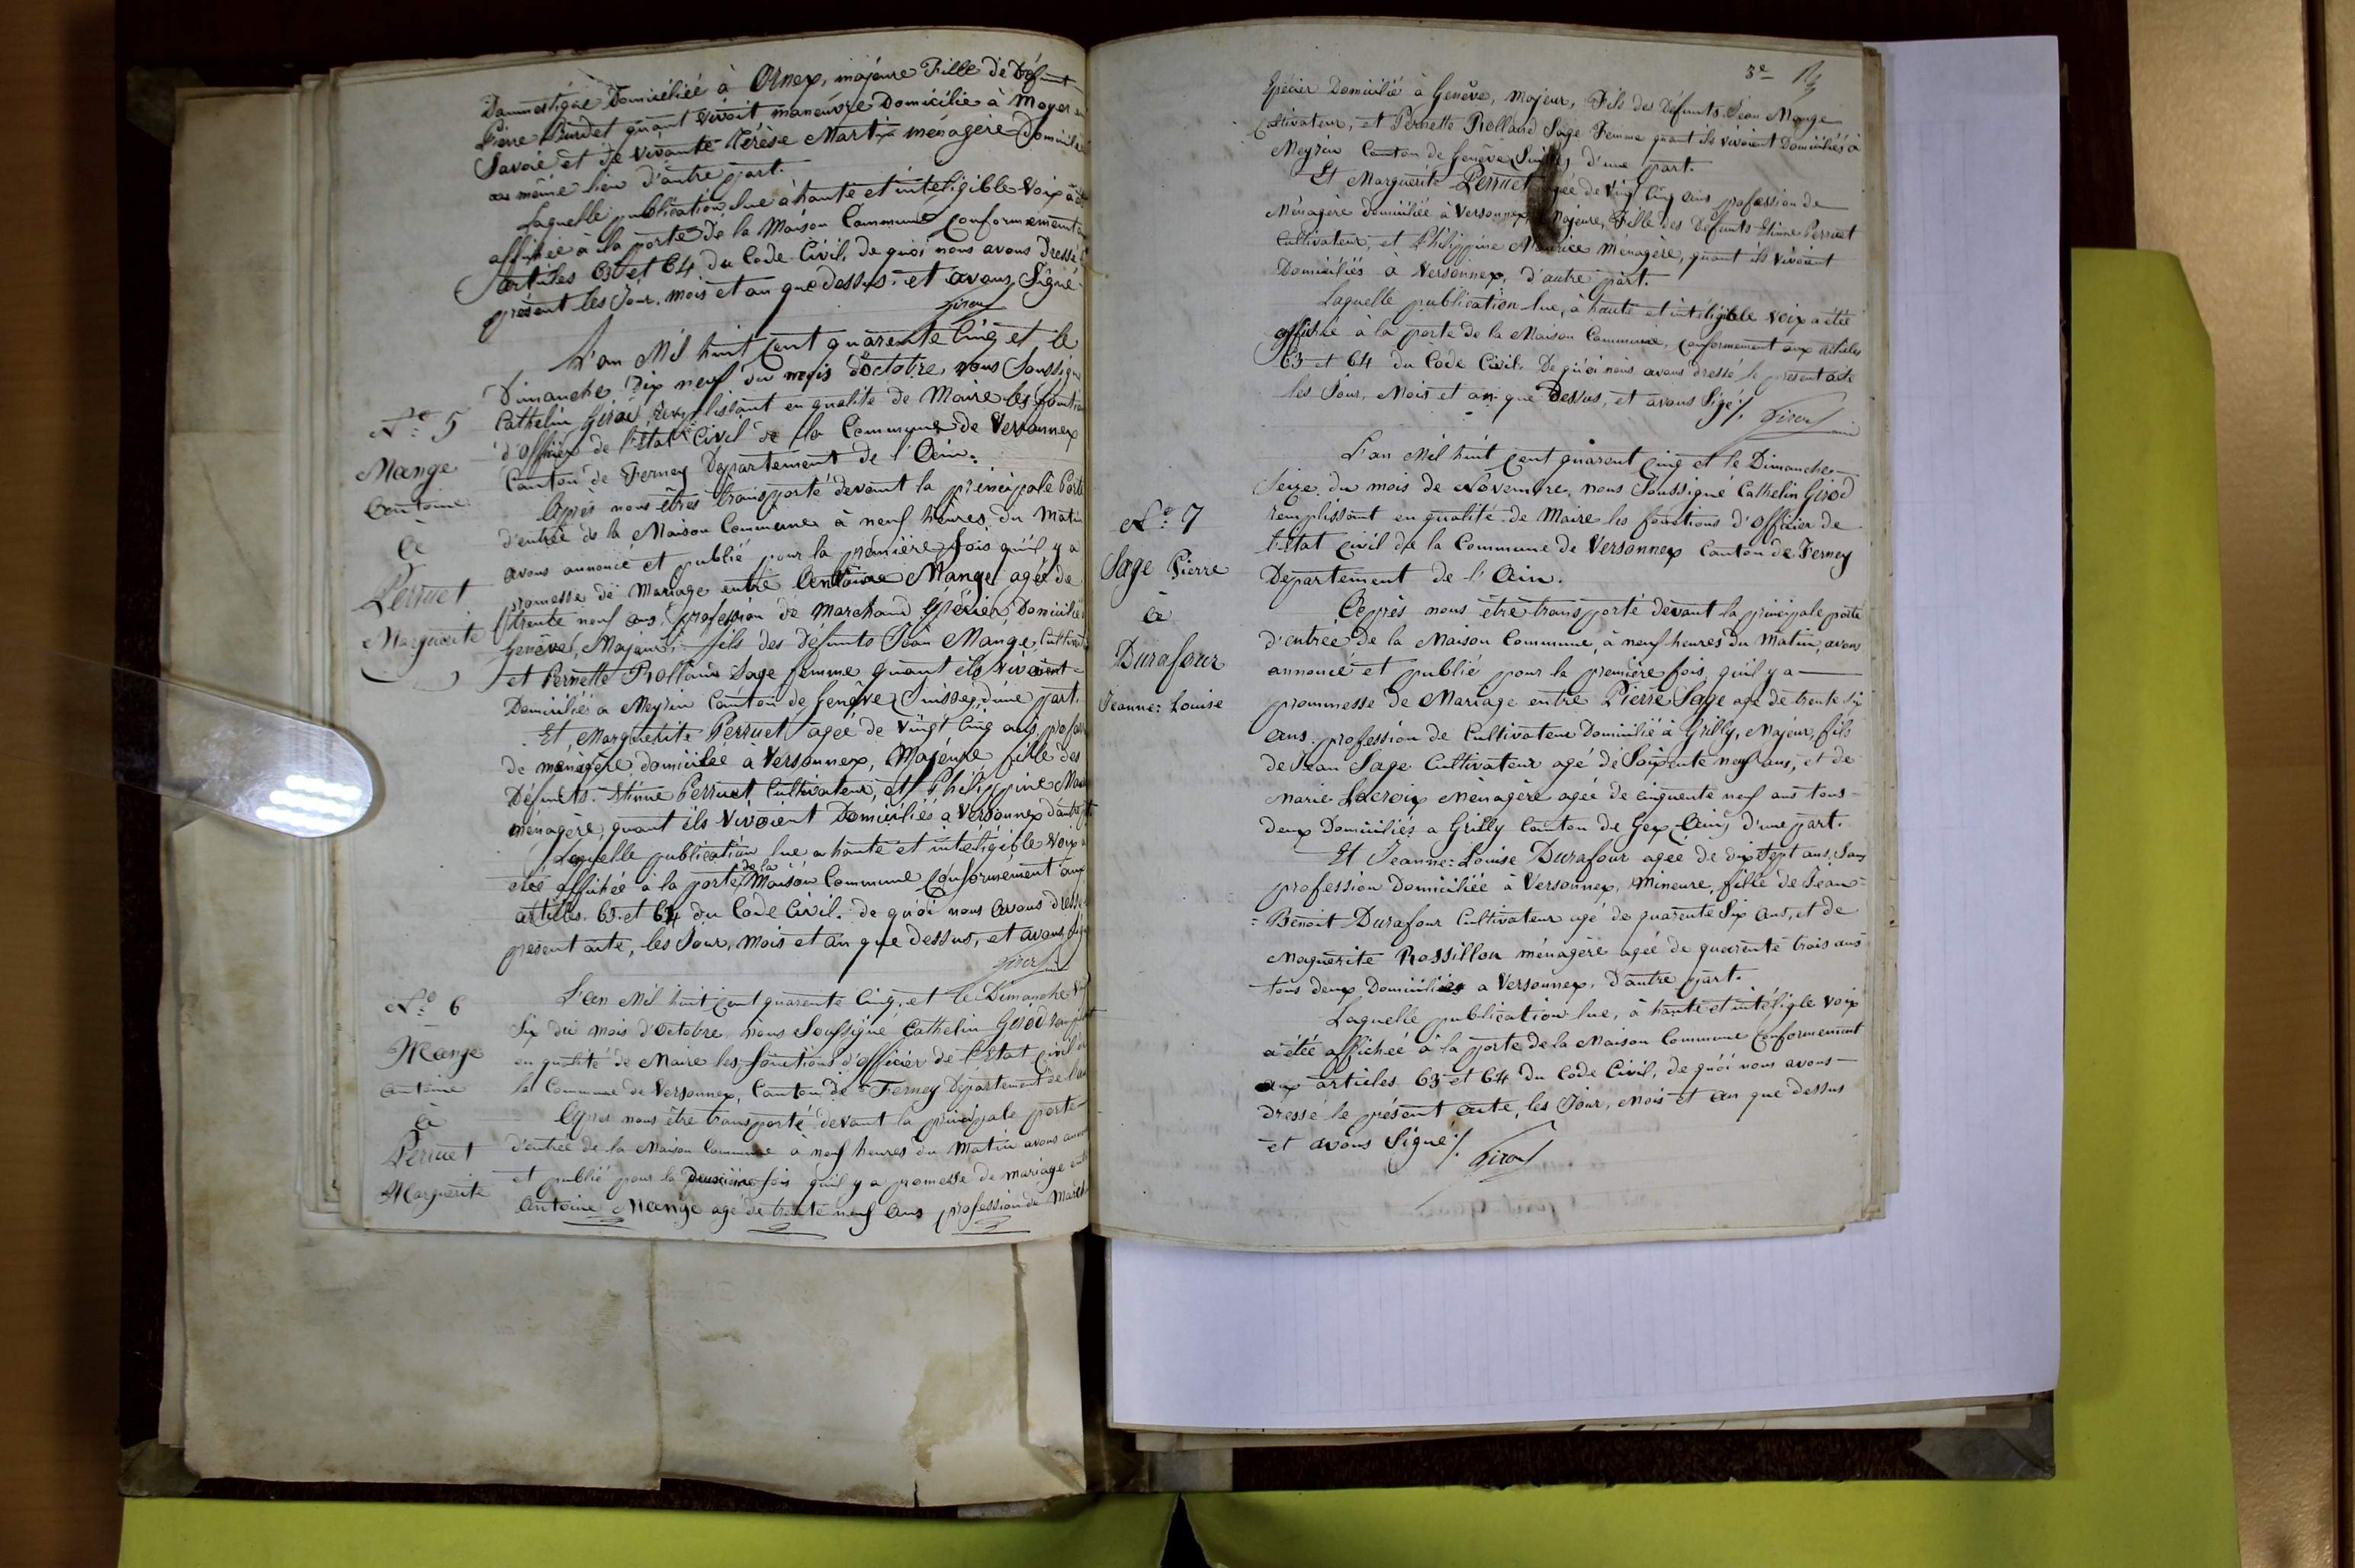 Dammestique Domiciliée à Ornex, majeure Fille de Défunt
Pierre Burdet quant vivoit manœuvre Domicilié à Moyer en
Savoie et de vivante Térèse Martin ménagère Domicilié
au même lieu d'autre part.
Laquelle publication lue à haute et inteligible voix a été
affichée à la porte de la Maison Commune conformement aux
articles 63 et 64 du Code Civil, de quoi nous avons Dressé le
présent les Jour, mois et an que dessus, et avons Signé
Girod
L'an Mil huit cent quarente Cinq et le
Dimanche Dix neuf du mois d'octobre, nous Soussigné
Cathelin Girod remplissant en qualité de Maire les fonctions
d'officier de l'état Civil de la Commune de Versonnex
Canton de Ferney Département de l'Ain.
Après nous êtres transporté devant la principale Porte
d'entrée de la Maison Commune à neuf heures du Matin
avons annoncé et publié pour la première fois qu'il y a
promesse de Mariage entre Antoine Mange agée de
trente neuf ans, profession de Marchand Epicier, Domicilié à
Genève, Majeur, fils des défunts Jean Mange, Cultivateur
et Pernette Rolland Sage femme quant ils vivoient
Domiciliés a Meyrin Canton de Genève (Suisse), d'une part.
Et, Marguerite Perruet agée de vingt cinq ans, profession
de ménagère domiciliée à Versonnex, Majeure fille des
Défunts. Etiene Perruet Cultivateur, et Philippine Maurice
ménagère, quant ils vivoient Domiciliés a Versonnex d'autre part.
Laquelle publication lue a haute et intéligible voix a
été affichée à la porte de la Maison Commune Conformément aux
articles. 63. et 64 du Code Civil. de quoi nous avons dressé le
présent acte, les Jour, mois et an que dessus, et avons signé
Girod
L'an Mil huit cent quarente Cinq, et le Dimanche vingt
Six du mois d'octobre, nous Soussigné Cathelin Girod remplissant
en qualité de Maire les fonctions d'officier de l'Etat Civil de
la Commune de Versonnex, Canton de Ferney Département de l'ain
Après nous être transporté devant la principale porte
d'entrée de la Maison Commune à neuf heures du Matin avons annoncé
et publié pour la deuxième fois qu'il y a promesse de mariage entre
Antoine Mange agé de trente neuf ans profession de Marchand
N.º 5
Mange
Antoine
à
Perruet
Marguerite
N.º 6
Mange
antoine
à
Perruet
Marguerite
3e
Epicier Domicilié à Genève, Majeur, Fils des Défunts Jean Mange
Cultivateur, et Pernette Rolland Sage Femme quant ils vivoient Domiciliés à
Meyrin Canton de Genève (Suisse) d'une part.
Et Marguerite Perruet agée de Vingt Cinq ans profession de
Ménagère Domiciliée à Versonnex, Majeure, Fille des Défunts Etienne Perruet
Cultivateur, et Philippine Maurice Ménagère, quant ils vivoient
Domiciliés à Versonnex, d'autre part.
Laquelle publication lue, à haute et inteligible voix a étée
affiché à la porte de la Maison Commune, conformement aux articles
63 et 64 du Code Civil. De quoi nous avons dressé le présent acte
les Jour, Mois et an que Dessus, et avons Sigé/. Girod
L'an Mil huit Cent quarent Cinq et le Dimanche
Seize du mois de Novembre, nous Soussigné Cathelin Girod
remplissant en qualité de Maire les fonctions d'officier de
l'état civil de la Commune de Versonnex Canton de Ferney
Département de l'Ain.
Après nous être transporté devant la principale porte
d'entrée de la Maison Commune, à neuf heures du Matin, avons
annoncé et publié pour la première fois, qu'il y a
prommesse de Mariage entre Pierre Sage agé de trente six
ans. profession de Cultivateur Domicilié à Grilly, Majeur, fils
de Jean Sage Cultivateur agé de Soixente neuf ans, et de
Marie Lacroix Ménagère agée de cinquente neuf ans tous
deux Domiciliés a Grilly Canton de Gex (Ain) d'une part.
Et Jeanne=Louise Durafour agée de dix sept ans, Sans
profession Domiciliée à Versonnex, Mineure, fille de Jean=
=Benoit Durafour Cultivateur agé de quarente Six ans, et de
Maguerite Rossillon ménagère agée de quarente trois ans
tous deux Domiciliés a Versonnex, d'autre part.
Laquelle publication lue, à haute et intéligle voix
a étée affichée à la porte de la Maison Commune Conformement
aux articles 63 et 64 du Code Civil, de quoi nous avons
dressé le présent acte, les Jour, Mois et an que dessus
et avons Signé/. Girod
N.º 7
Sage Pierre
à
Durafour
Jeanne=Louise